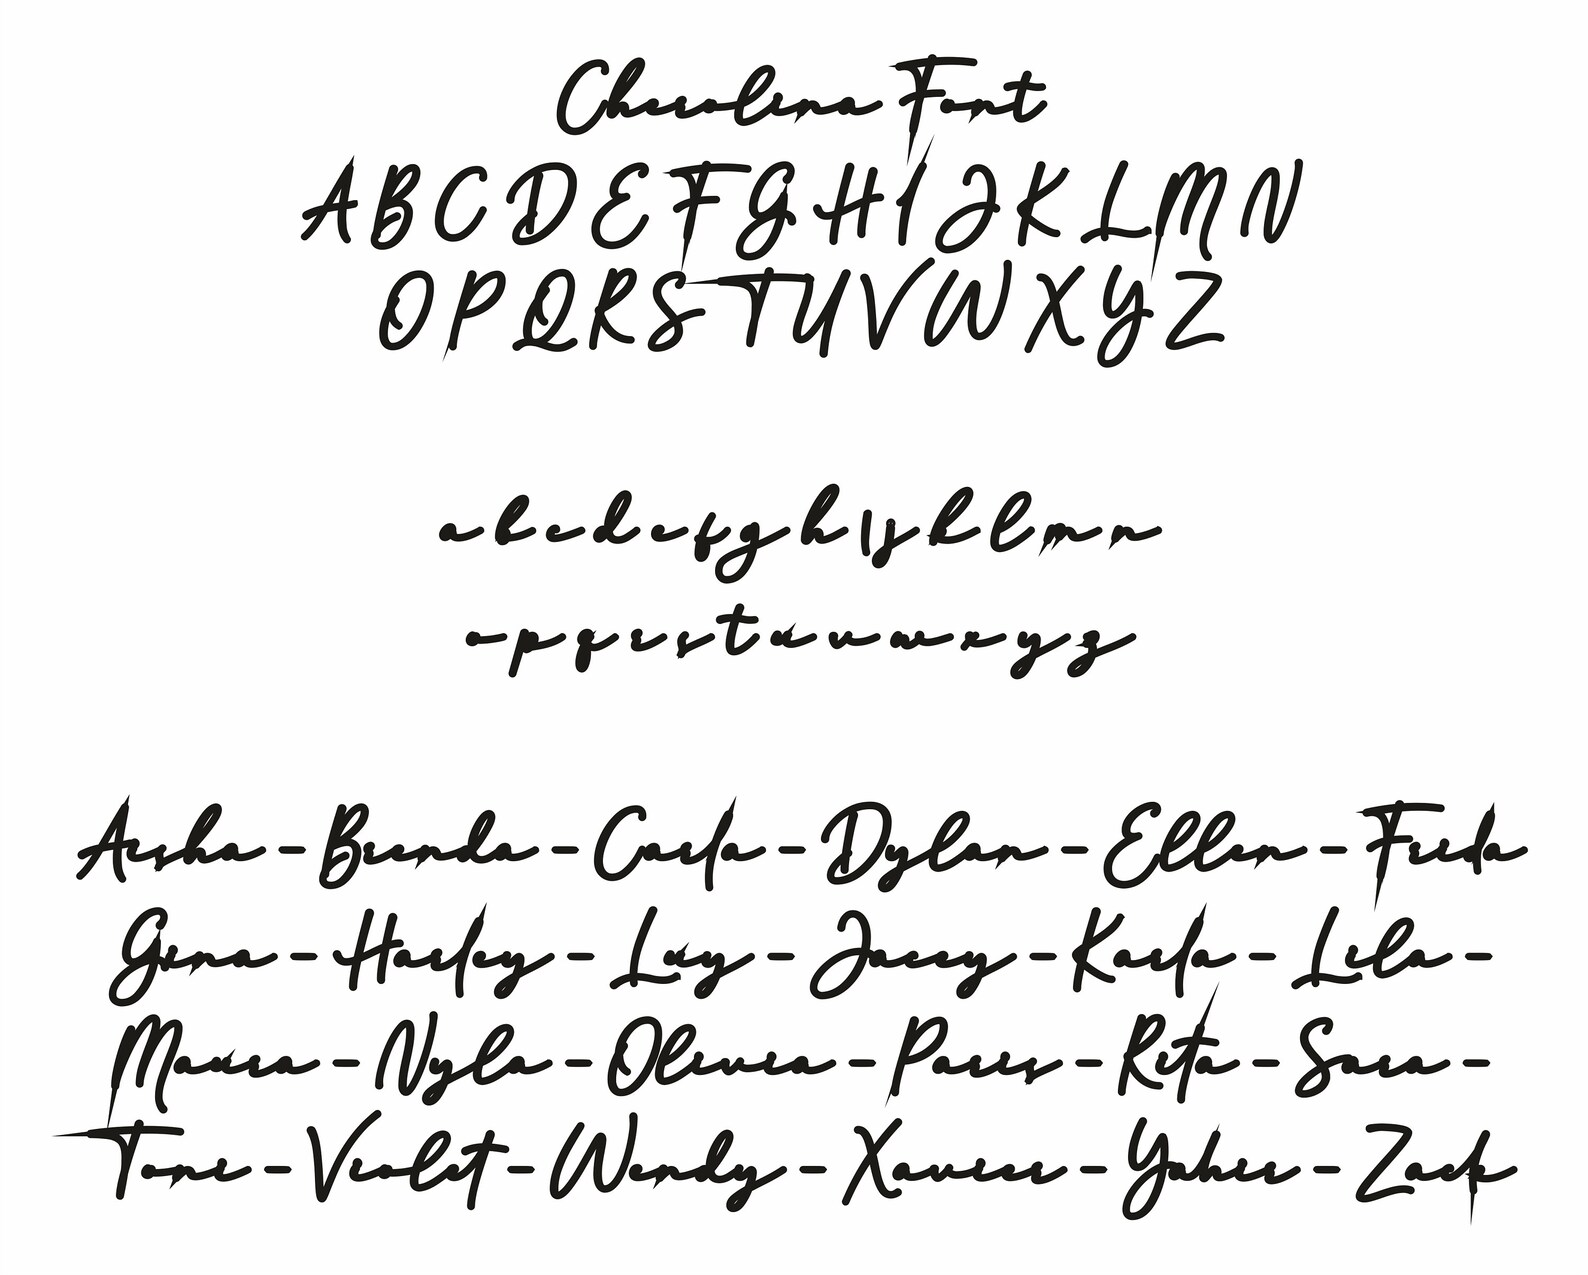 Cherolina Font
A B C D E F G H I J K L M N
O P Q R S T U V W X Y Z
a b c d e f g h i j k l m n
o p q r s t u v w x y z
Aisha - Brenda - Carla - Dylan - Ellen - Frida
Gina - Harley - Icey - Jacey - Karla - Lila -
Maura - Nyla - Olivia - Paris - Rita - Sara -
Toni - Violet - Wendy - Xavier - Yahir - Zack